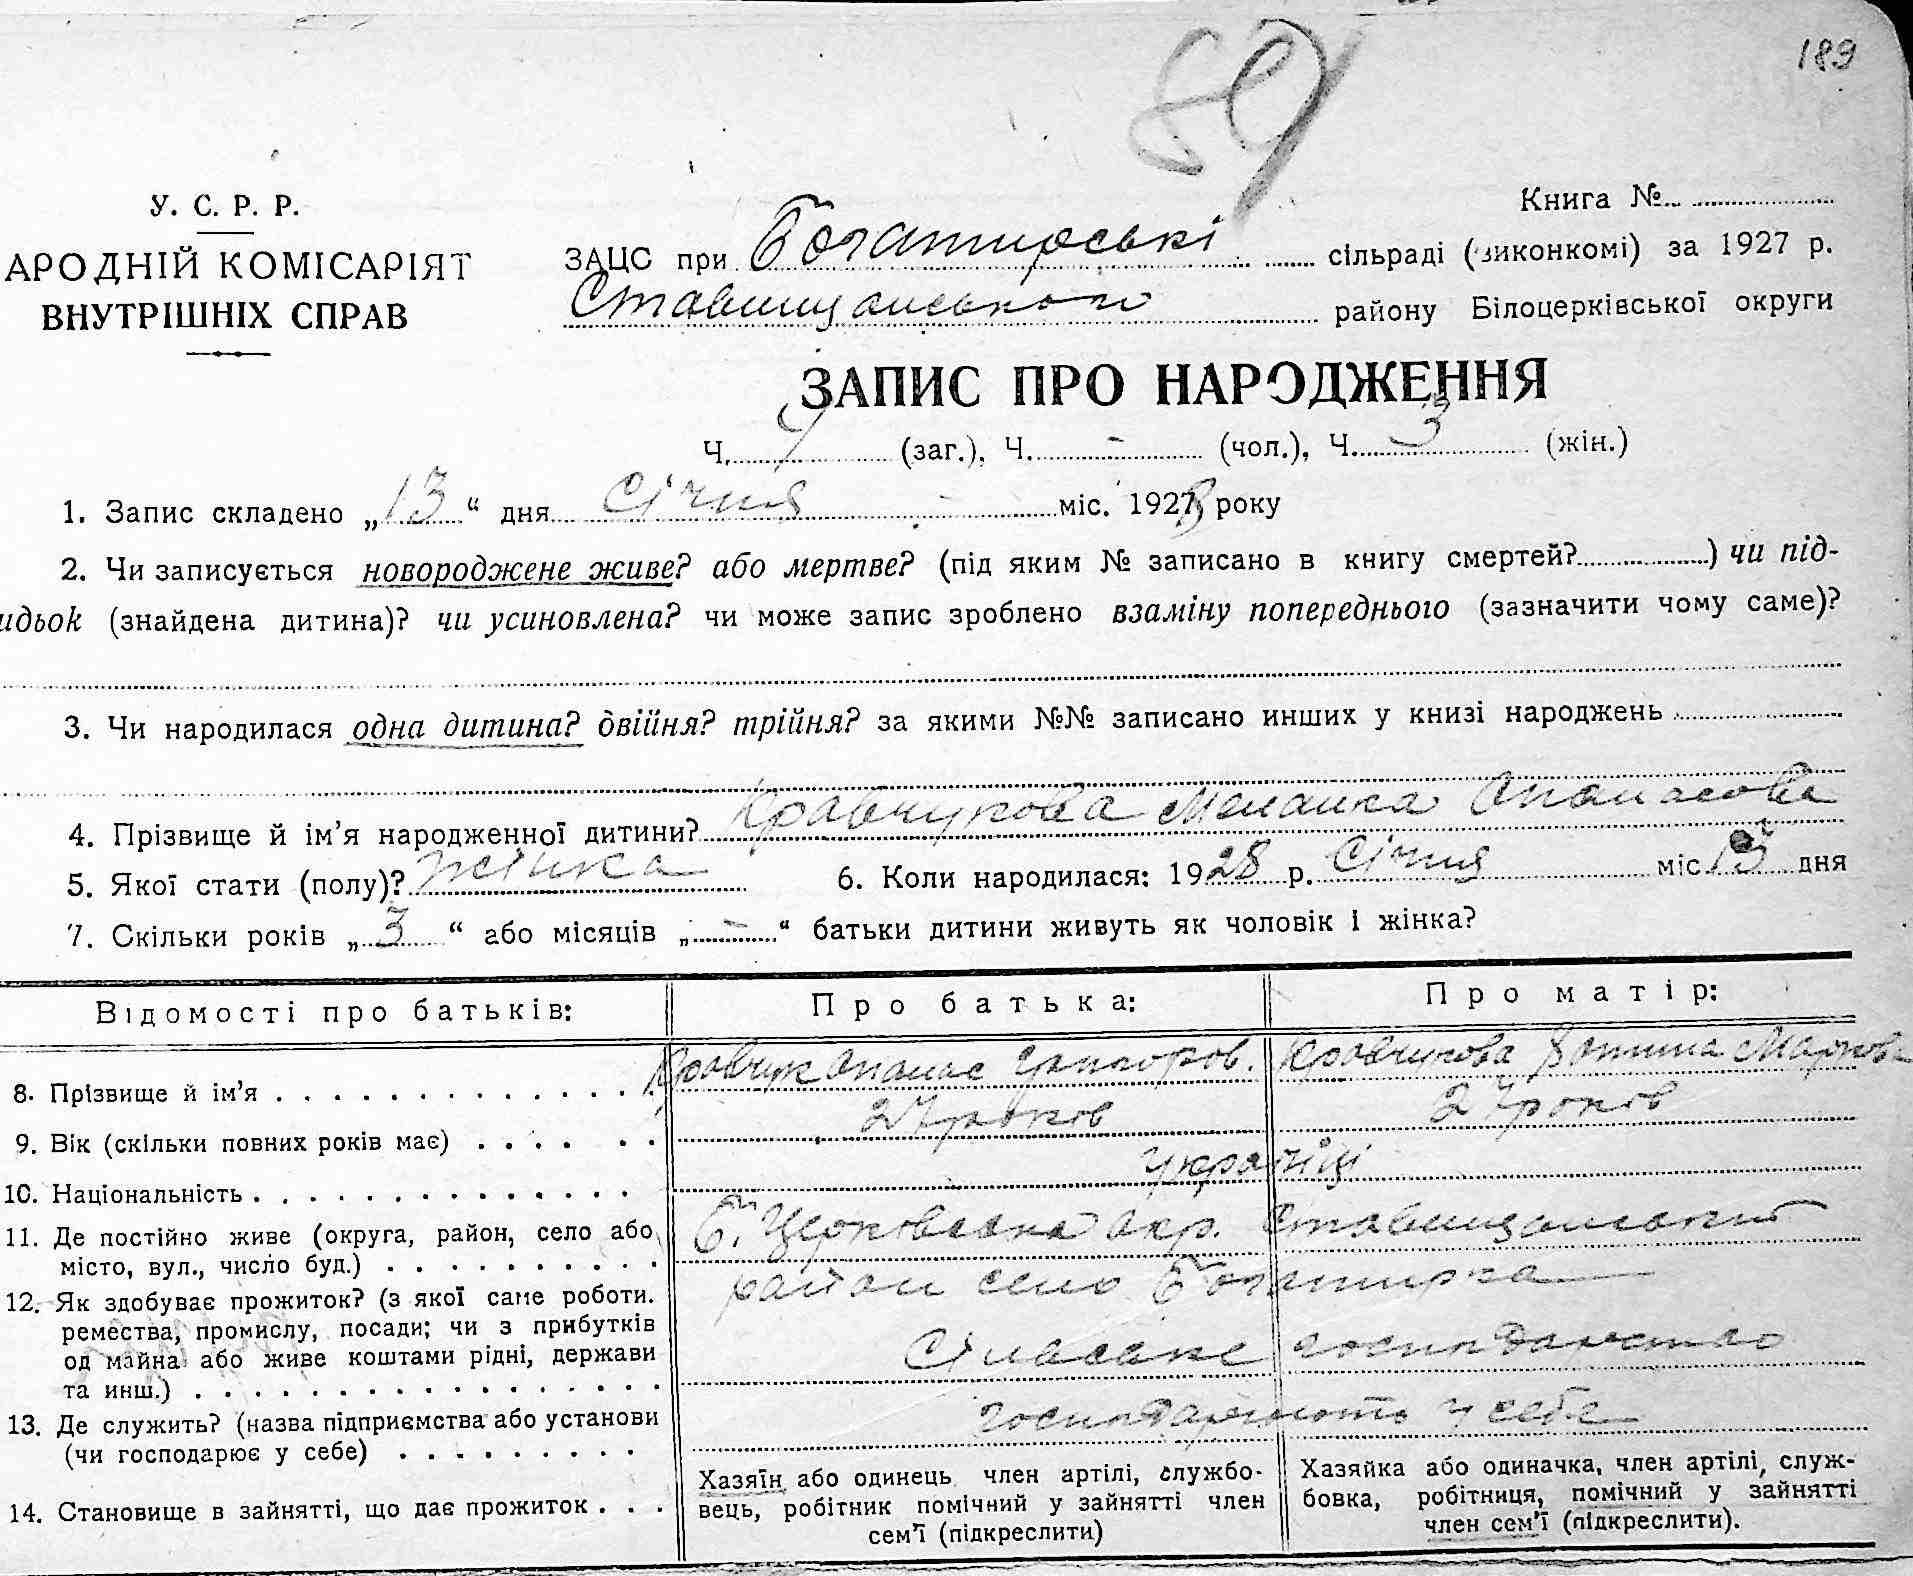 189
89
У. С. Р. Р.
АРОДНІЙ КОМІСАРІЯТ
ВНУТРІШНІХ СПРАВ
Книга №
ЗАЦС при Богатирські сільраді (виконкомі) за 1927 р.
Ставищанського району Білоцерківської округи
ЗАПИС ПРО НАРОДЖЕННЯ
Ч. (заг.), Ч. - (чол.), Ч. 3 (жін.)
1. Запис складено „13“ дня Січня міс. 1928 року
2. Чи записується новороджене живе? або мертве? (під яким № записано в книгу смертей?) чи під-
идьок (знайдена дитина)? чи усиновлена? чи може запис зроблено взаміну попереднього (зазначити чому саме)?
3. Чи народилася одна дитина? двійня? трійня? за якими №№ записано инших у книзі народжень
4. Прізвище й ім’я народженної дитини? Кравчукова Меланка Опанасова
5. Якої стати (полу)? жінка 6. Коли народилася: 1928 р. Січня міс дня
7. Скільки років „3“ або місяців „-“ батьки дитини живуть як чоловік і жінка?
Відомості про батьків: Про батька: Про матір:
8. Прізвище й ім’я Кравчук Опанас Григоров. Кравчукова Маркова
9. Вік (скільки повних років має) 27 років 27 років
10. Національність українці
11. Де постійно живе (округа, район, село або Б. Церківська окр. Ставищанський
місто, вул., число буд.) район село Богатирка
12. Як здобуває прожиток? (з якої саме роботи.
ремества, промислу, посади; чи з прибутків
од майна або живе коштами рідні, держави Сільське господарство
та инш.)
13. Де служить? (назва підприємства або установи господарюють у себе
(чи господарює у себе)
14. Становище в зайнятті, що дає прожиток
Хазяїн або одинець член артілі, службо-
вець, робітник помічний у зайнятті член
сем’ї (підкреслити)
Хазяйка або одиначка, член артілі, служ-
бовка, робітниця, помічний у зайнятті
член сем’ї (підкреслити).